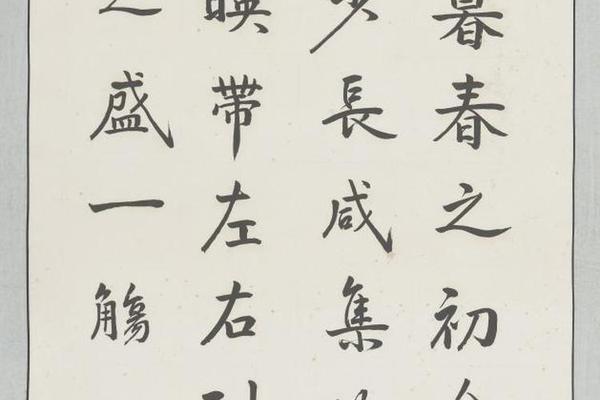 暮春之初
少長咸集
帶左右
之盛一觴